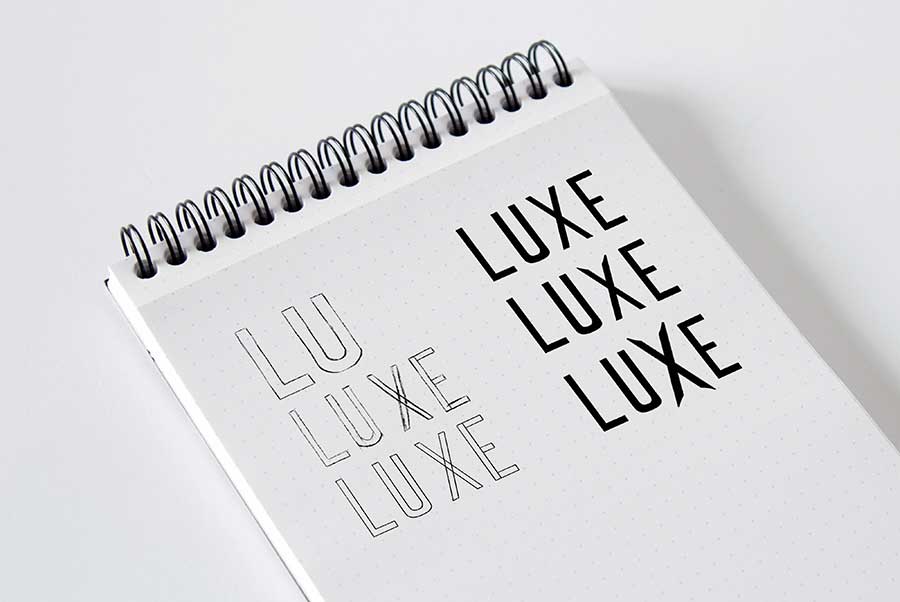 LU
LUXE
LUXE
LUXE
LUXE
LUXE